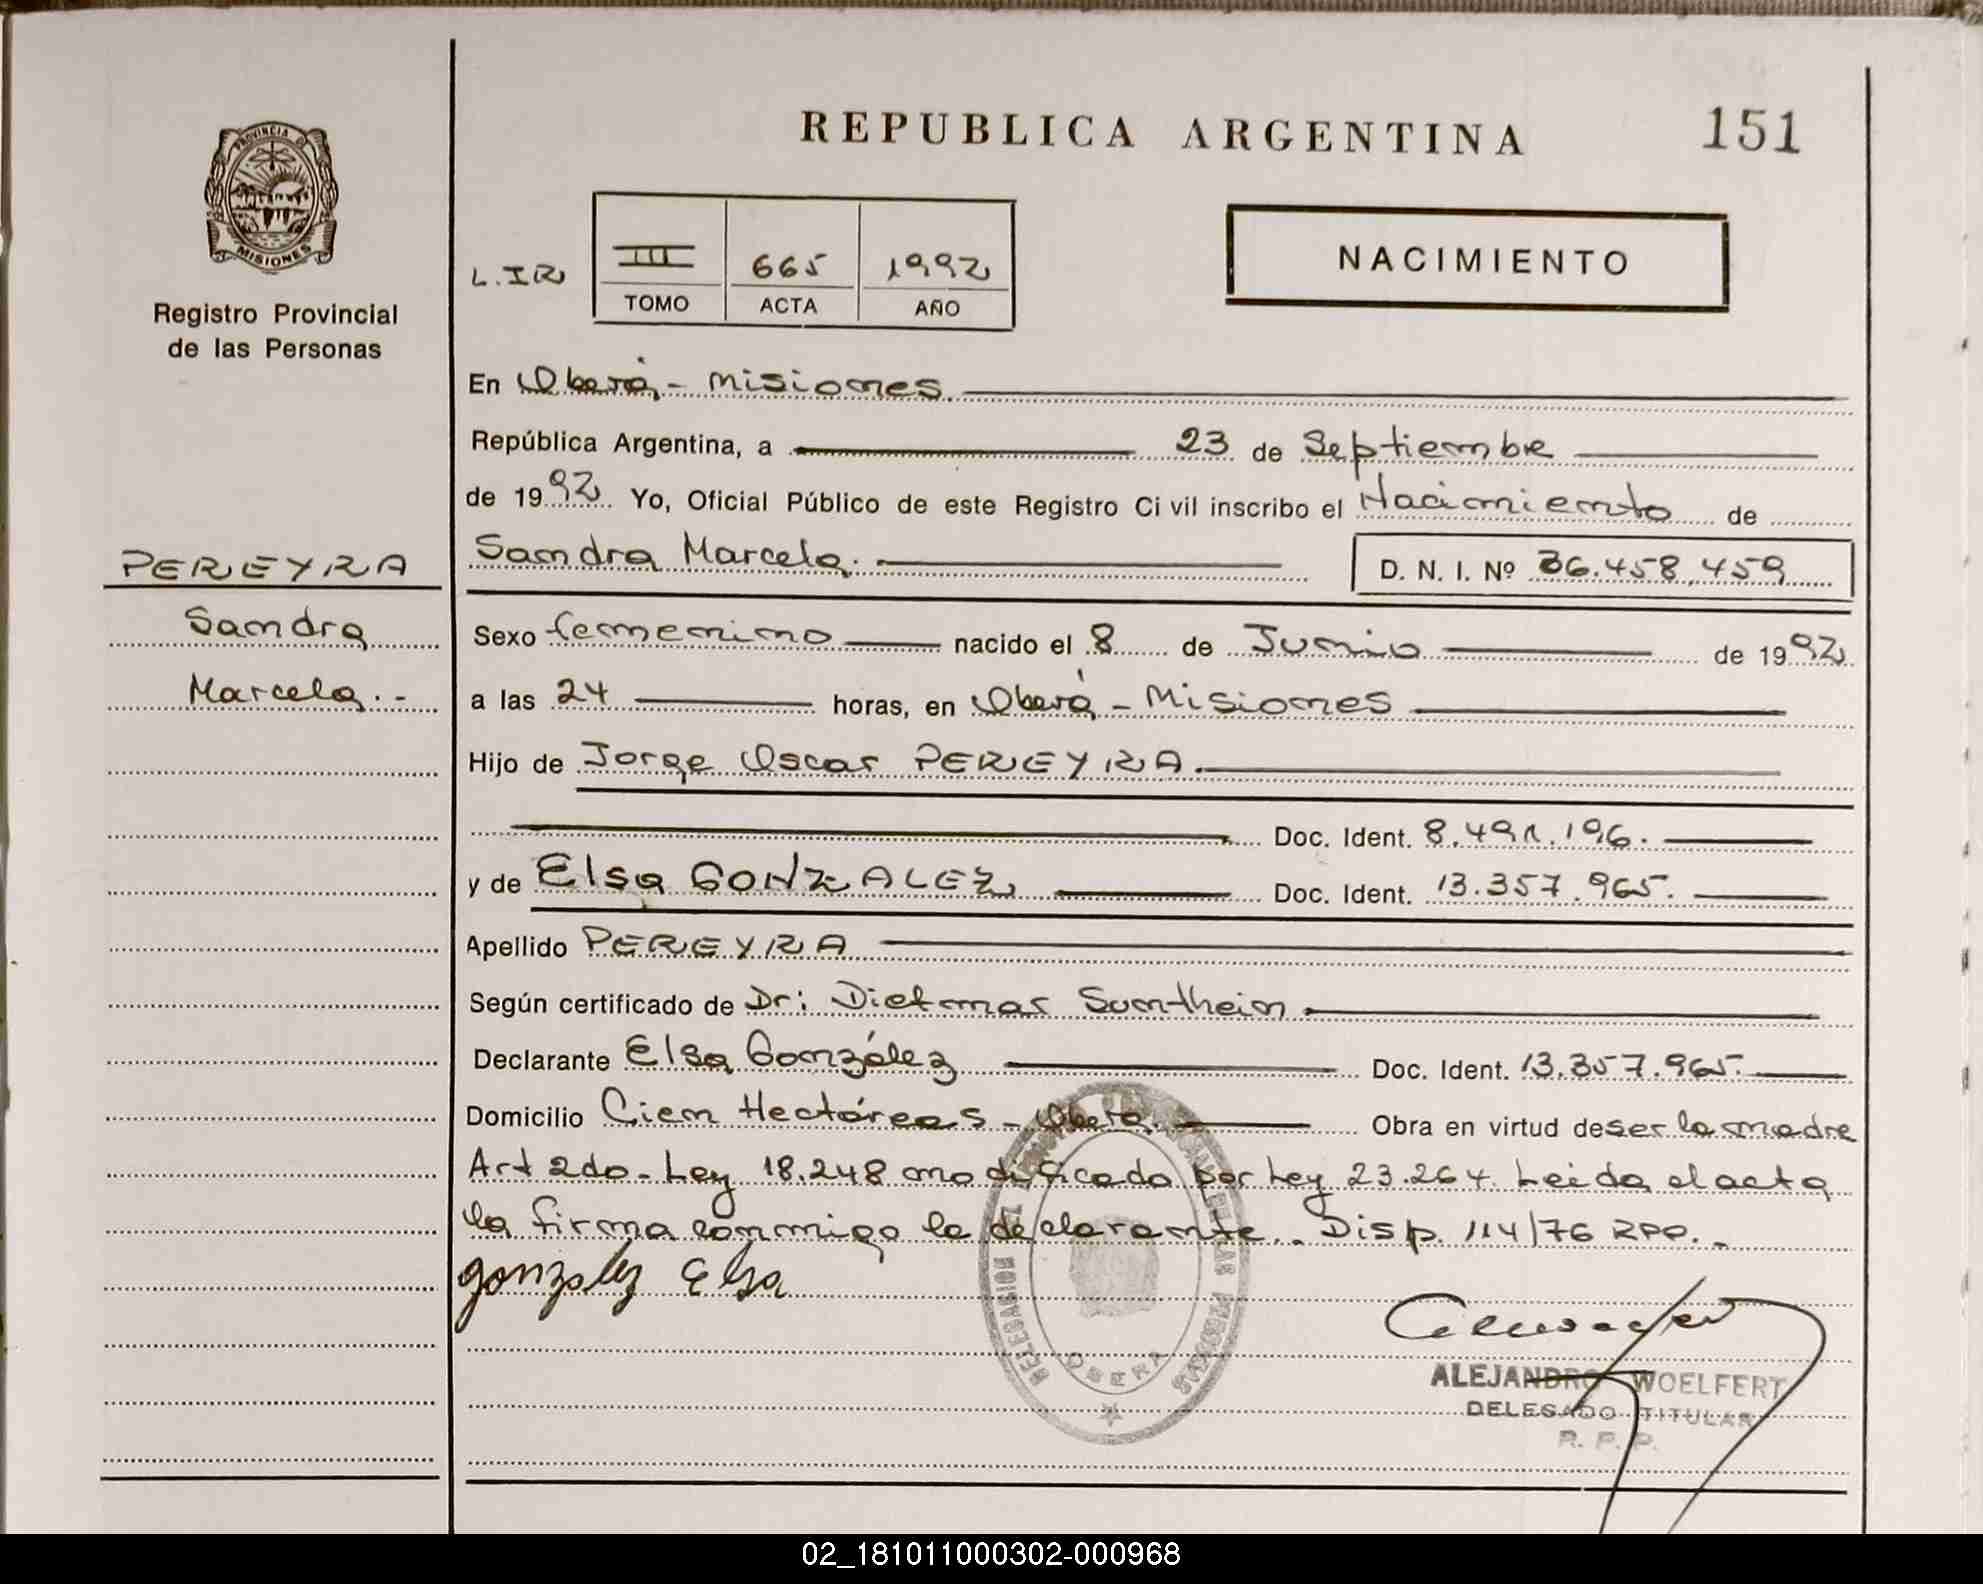 REPUBLICA ARGENTINA
151
PROVINCIA D
MISIONES
Registro Provincial
de las Personas
L.IR
III 665 1992
TOMO ACTA AÑO
NACIMIENTO
En Oberá - Misiones
República Argentina, a 23 de Septiembre
de 1992 Yo, Oficial Público de este Registro Civil inscribo el Nacimiento de
Sandra Marcela. D. N. I. Nº 36.458.459
PEREYRA
Sandra
Marcela.-
Sexo femenino nacido el 8 de Junio de 1992
a las 24 horas, en Oberá - Misiones
Hijo de Jorge Oscar PEREYRA.
Doc. Ident. 8.491.196.
y de Elsa GONZALEZ Doc. Ident. 13.357.965.
Apellido PEREYRA
Según certificado de Dr: Dietmar Sonthein
Declarante Elsa González Doc. Ident. 13.357.965.
Domicilio Cien Hectáreas - Oberá. Obra en virtud de ser la madre
Art 2do - Ley 18.248 modificado por Ley 23.264. Leida el acta
la firma conmigo la declarante. Disp. 114/76 RPP.-
gonzalez Elsa
DELEGACION
OBERA
LAS PERSONAS
ALEJANDRO WOELFERT
DELEGADO TITULAR
R. P. P.
02_181011000302-000968